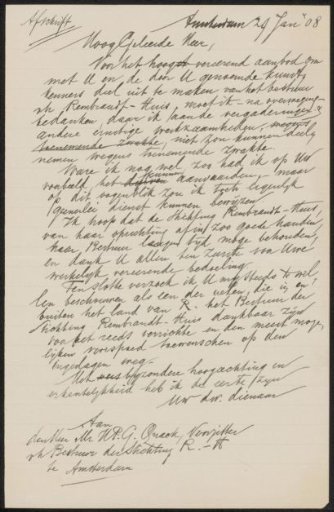 Afschrift
Amsterdam 29 Jan' 08
Hoog Geleerde Heer,
Voor het hoogst vereerend aanbod om
met U en de door U genoemde kunst-
kenners deel uit te maken van het bestuur
v/h Rembrandt-Huis, moet ik - na overweging -
bedanken, daar ik aan de vergaderingen &
andere ernstige werkzaamheden,
toenemende zwakte, niet zou kunnen deel
nemen wegens toenemende zwakte.
Ware ik nog wel zoo had ik op Uw
voorbeeld, het aanvaarden, maar
op dit oogenblik zou ik toch eigenlijk
geenerlei dienst kunnen bewijzen
Ik hoop dat de Stichting Rembrandt-Huis,
van haar oprichting af in zoo goede handen
haar Bestuur langen tijd moge behouden,
en dank U allen ten zeerste voor Uwe
werkelijk vereerende bedoeling.
Ten slotte verzoek ik U mij steeds te wil-
len beschouwen als een der velen, die in en
buiten het land van R. het Bestuur der
Stichting Rembrandt-Huis dankbaar zijn
voor het reeds verrichte en den meest moge-
lijken voorspoed toewenschen op den
ingeslagen weg.-
Met bijzondere hoogachting en
erkentelijkheid heb ik de eer te zijn
Uw dw. dienaar
Aan
den Heer Mr. H.P.G. Quack, Voorzitter
v/h Bestuur der Stichting R.-H
te Amsterdam